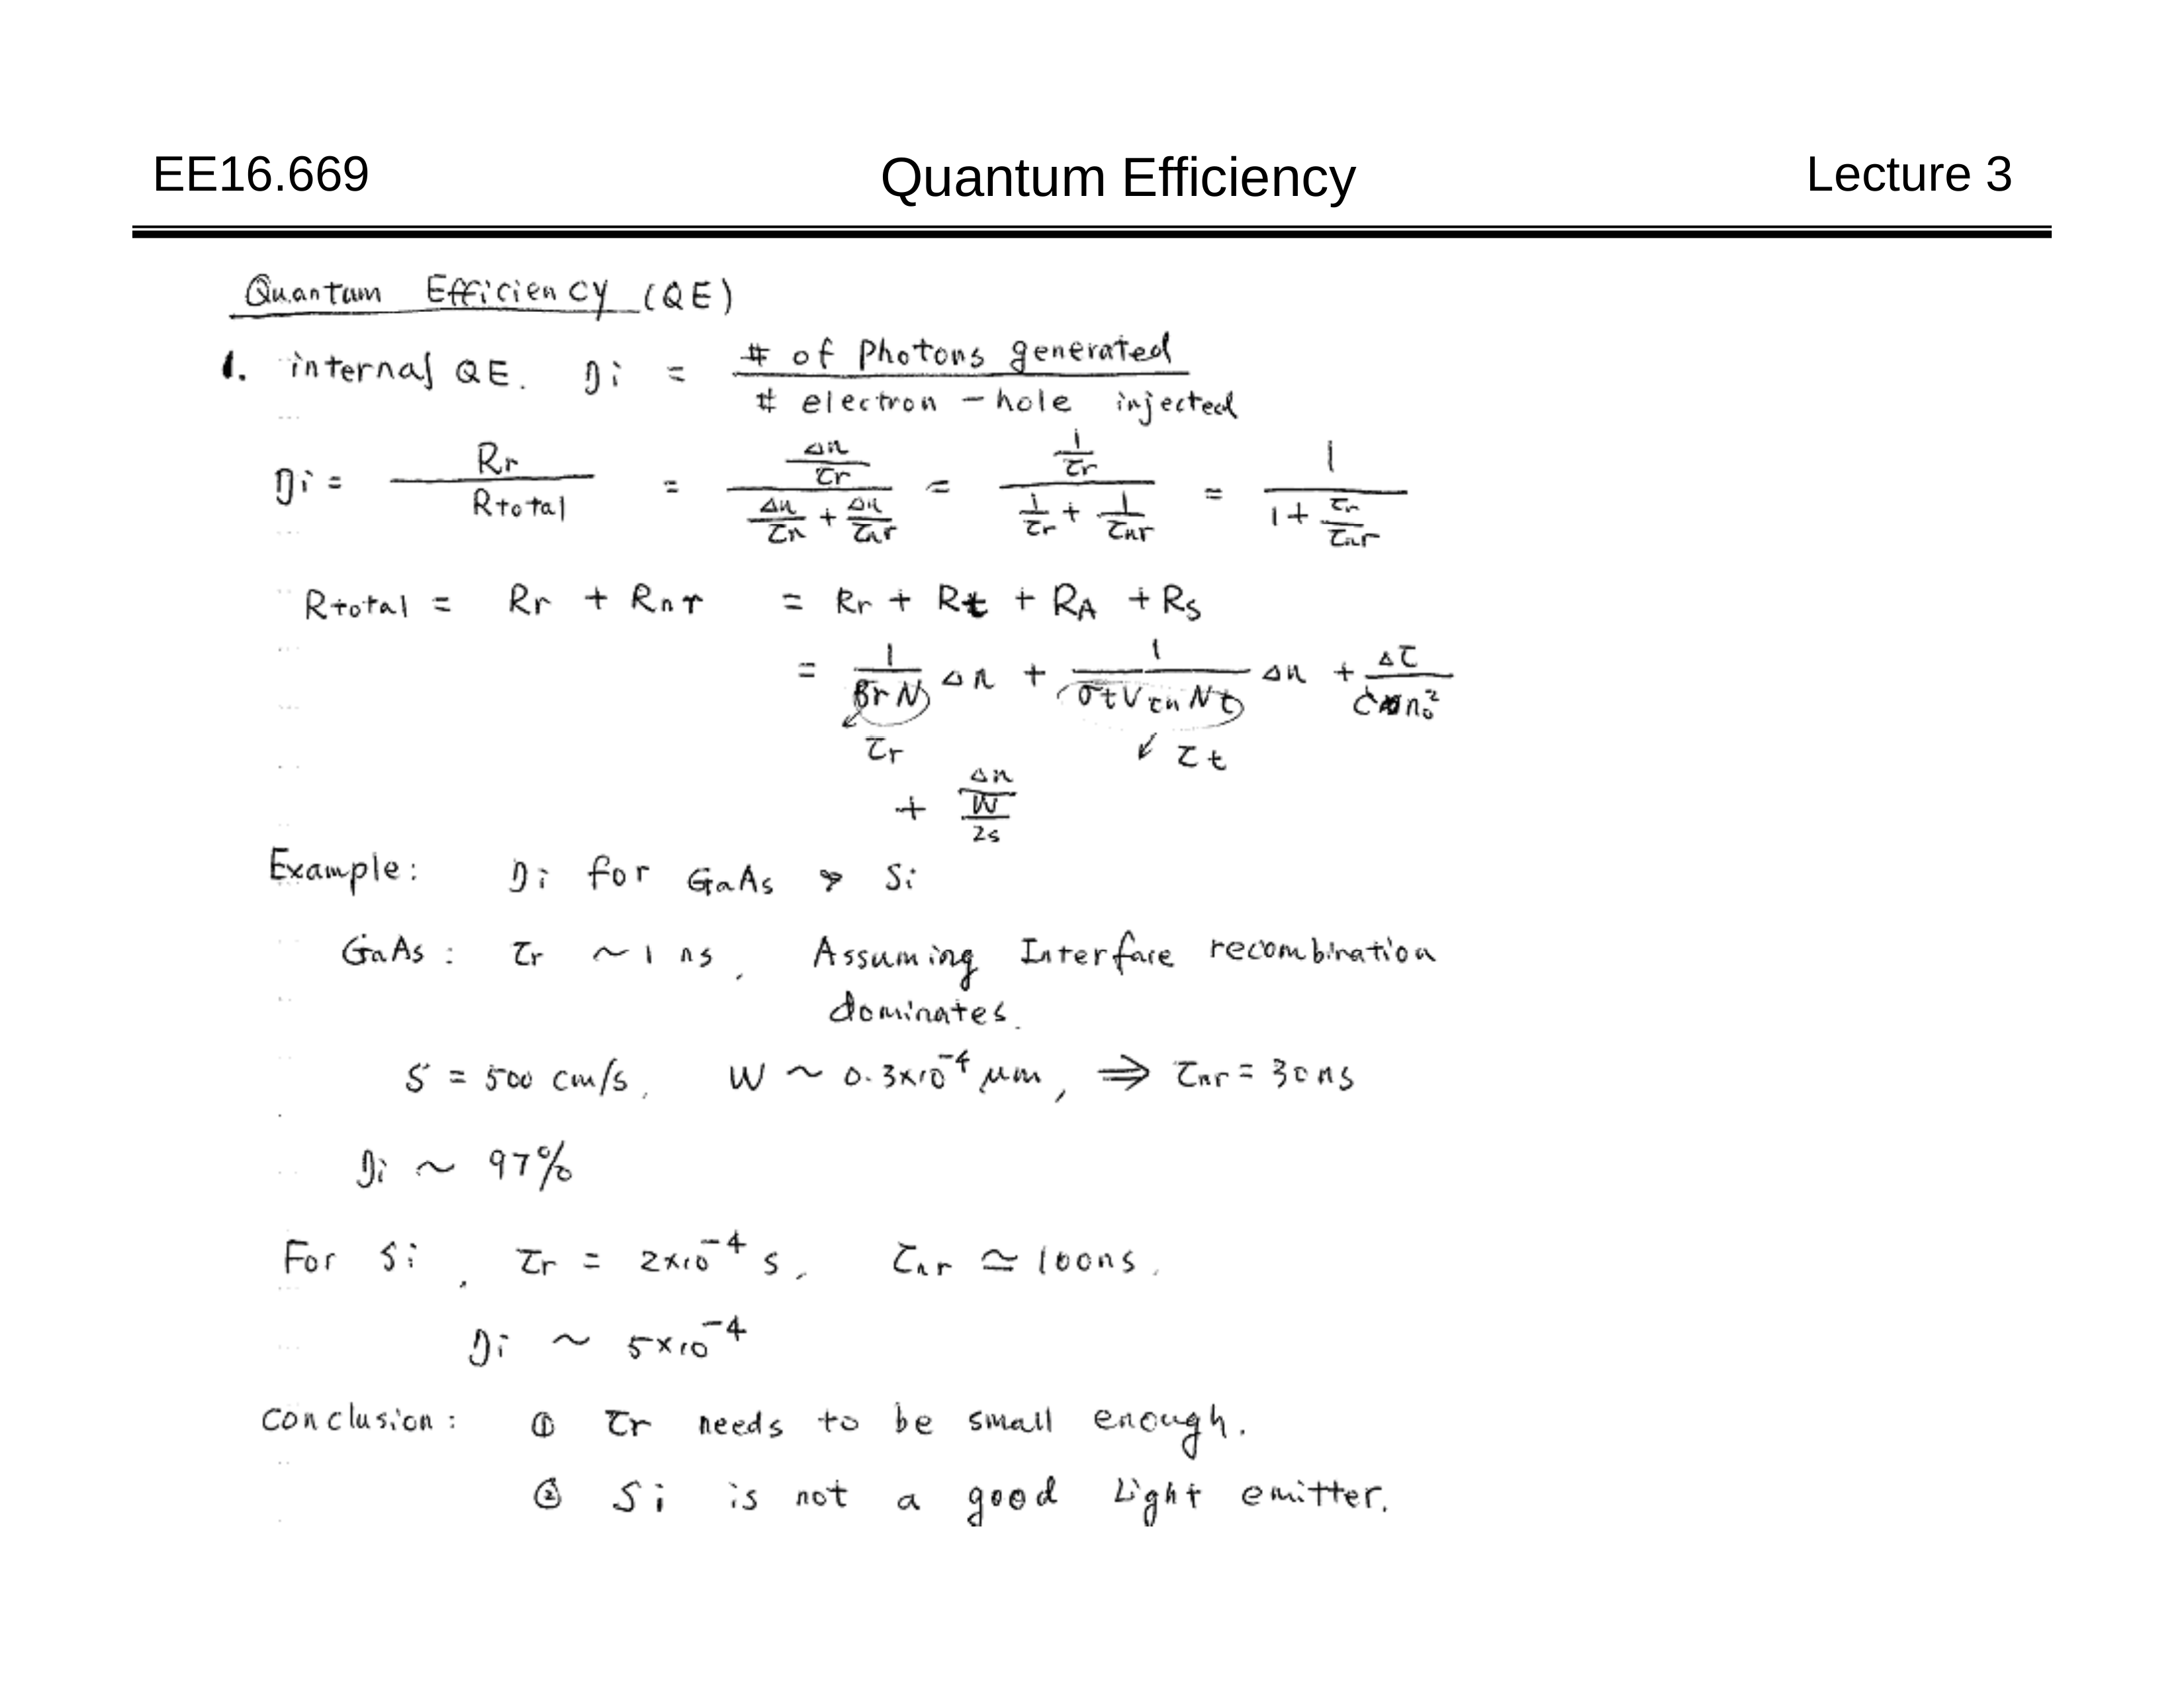 EE16.669 Quantum Efficiency Lecture 3
Quantum Efficiency (QE)
1. internal QE. ηi = # of photons generated / # electron - hole injected
ηi = Rr / Rtotal = (Δn/τr) / (Δn/τn + Δn/τnr) = (1/τr) / (1/τr + 1/τnr) = 1 / (1 + τr/τnr)
Rtotal = Rr + Rnr = Rr + Rt + RA + Rs
= 1/(BrN) Δn + 1/(σt Vth Nt) Δn + Δτ/(C n₀²)
τr τt
+ Δn/(W/2s)
Example: ηi for GaAs & Si
GaAs: τr ~ 1 ns, Assuming Interface recombination
dominates.
S = 500 cm/s, W ~ 0.3×10⁻⁴ μm, ⇒ τnr = 30ns
ηi ~ 97%
For Si, τr = 2×10⁻⁴ s, τnr ≃ 100ns.
ηi ~ 5×10⁻⁴
conclusion: ① τr needs to be small enough.
② Si is not a good Light emitter.